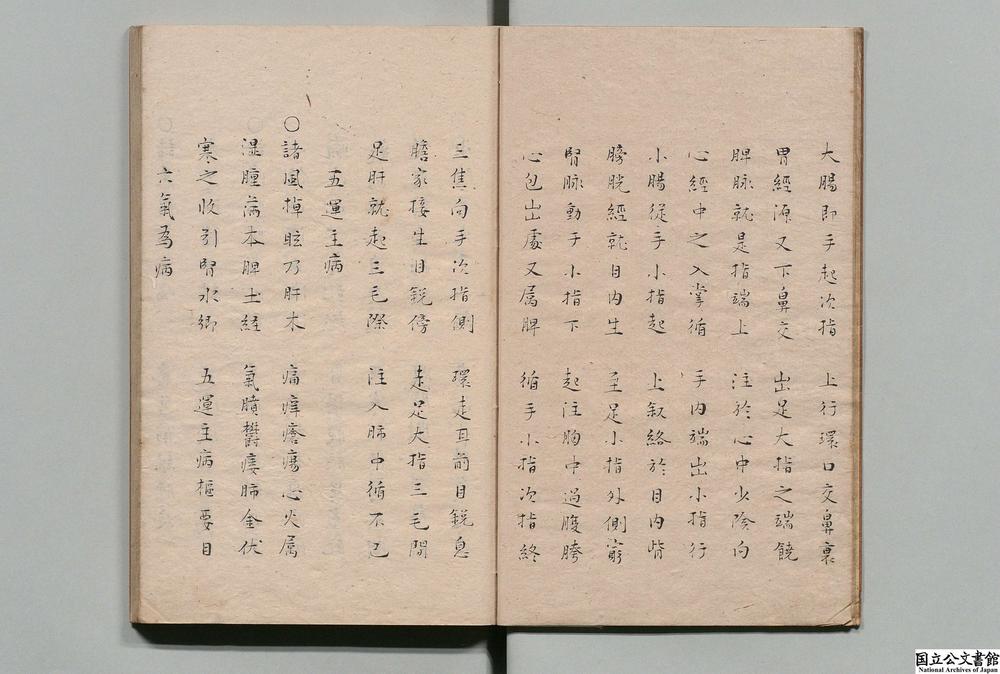 大腸即手起次指　上行環口交鼻裏
胃經源又下鼻交　出足大指之端饒
脾脉就是指端上　注於心中少陰向
心經中之入掌循　手内端出小指行
小腸従手小指起　上斜絡於目内眥
膀胱經就目内生　至足小指外側窮
腎脉動于小指下　起注胸中過腹胯
心包出處又属脾　循手小指次指終
三焦向手次指側　環走耳前目鋭息
膽家接生目鋭傍　走足大指三毛間
足肝就起三毛際　注入肺中循不已
五運主病
○諸風掉眩乃肝木　痛痒瘡瘍心火属
湿腫満本脾土経　氣膹欝痿肺金伏
寒之收引腎水郷　五運主病樞要目
六氣為病
国立公文書館
National Archives of Japan